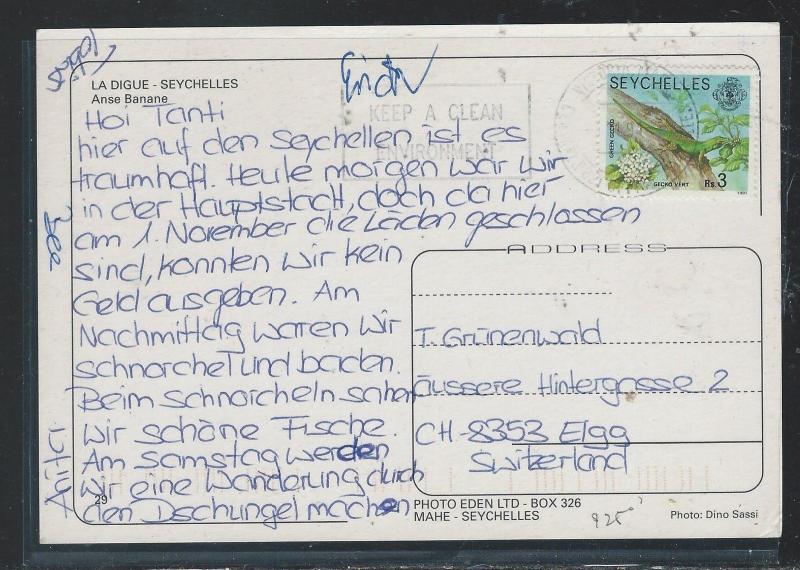 LA DIGUE - SEYCHELLES
Anse Banane
KEEP A CLEAN
ENVIRONMENT
SEYCHELLES
GREEN GECKO
GECKO VERT
Rs.3
Hoi Tanti
hier auf den Seychellen ist es
traumhaft. Heute morgen war wir
in der Hauptstadt, doch da hier
am 1. November die Läden geschlossen
sind, konnten wir kein
Geld ausgeben. Am
Nachmittag waren wir
schnorchel und baden.
Beim schnorcheln sahen
wir schöne Fische.
Am Samstag werden
wir eine Wanderung durch
den Dschungel machen
Anita
ADDRESS
T. Grünenwald
äussere Hintergasse 2
CH-8353 Elgg
Switzerland
29
PHOTO EDEN LTD - BOX 326
MAHE - SEYCHELLES
925
Photo: Dino Sassi